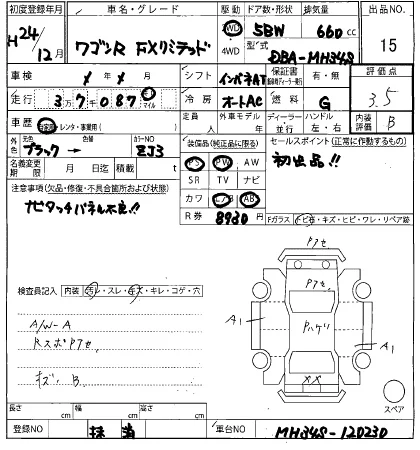 初度登録年月 車名・グレード 駆動 ドア数・形状 排気量 出品NO.
H24/12月 ワゴンR FXリミテッド 2WD 4WD 5BW 660cc 15
型式 DBA-MH34S
車検 / 月 シフト インパネAT 保証書 有・無 評価点
走行 3万7千087 マイル 冷房 オートAC 燃料 G 3.5
車歴 自家用 レンタ・事業用( ) 定員 人 外車モデル 年 ディーラー・並行 ハンドル 左・右 内装評価 B
外色 元色 ブラック → 色替 カラーNO ZJ3 装備品(純正品に限る) セールスポイント(正常に作動するもの)
名義変更期限 月 日迄 積載 t PS PW AW 初出品!!
注意事項(欠品・修復・不具合箇所および状態) SR TV ナビ
ナビタッチパネル不良!! カワ エアB ABS
R券 8930 Fガラス トビ石・キズ・ヒビ・ワレ・リペア跡
検査員記入 内装 汚レ・スレ・キズ・キレ・コゲ・穴
A/W-A
RスポPアセ
キズ B
Pアセ
Pアセ
Pハゲリ
A1
A1
XX
スペア
長さ cm 幅 cm 高さ cm
登録NO 抹消 車台NO MH34S-120230